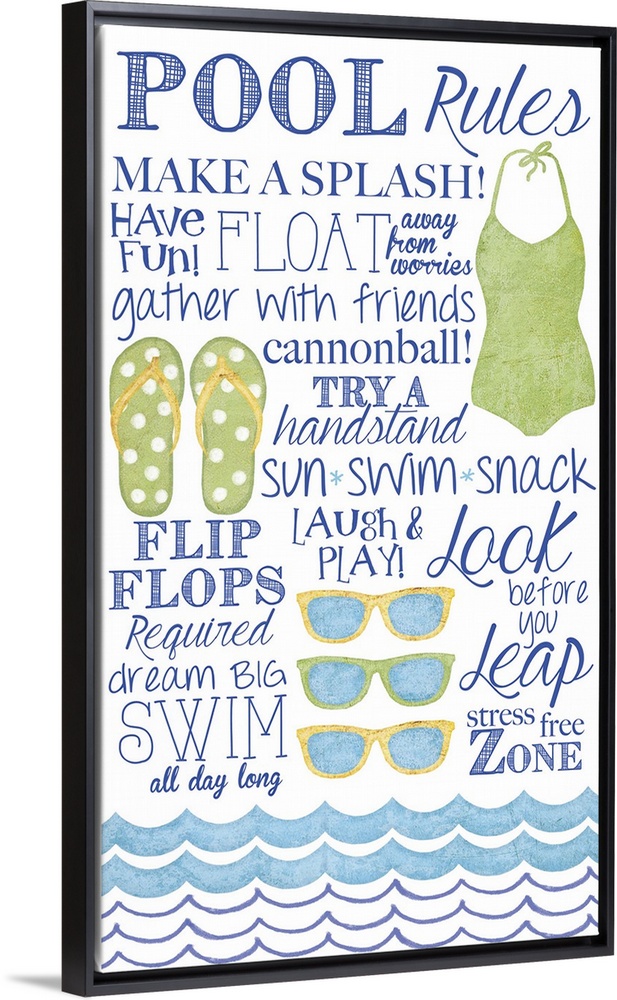 POOL Rules
MAKE A SPLASH!
HAVE FUN! FLOAT away from worries
gather with friends
cannonball!
TRY A
handstand
sun*swim*snack
FLIP FLOPS
Required
LAUGH & PLAY!
Look
before you
Leap
dream BIG
SWIM
all day long
stress free
ZONE